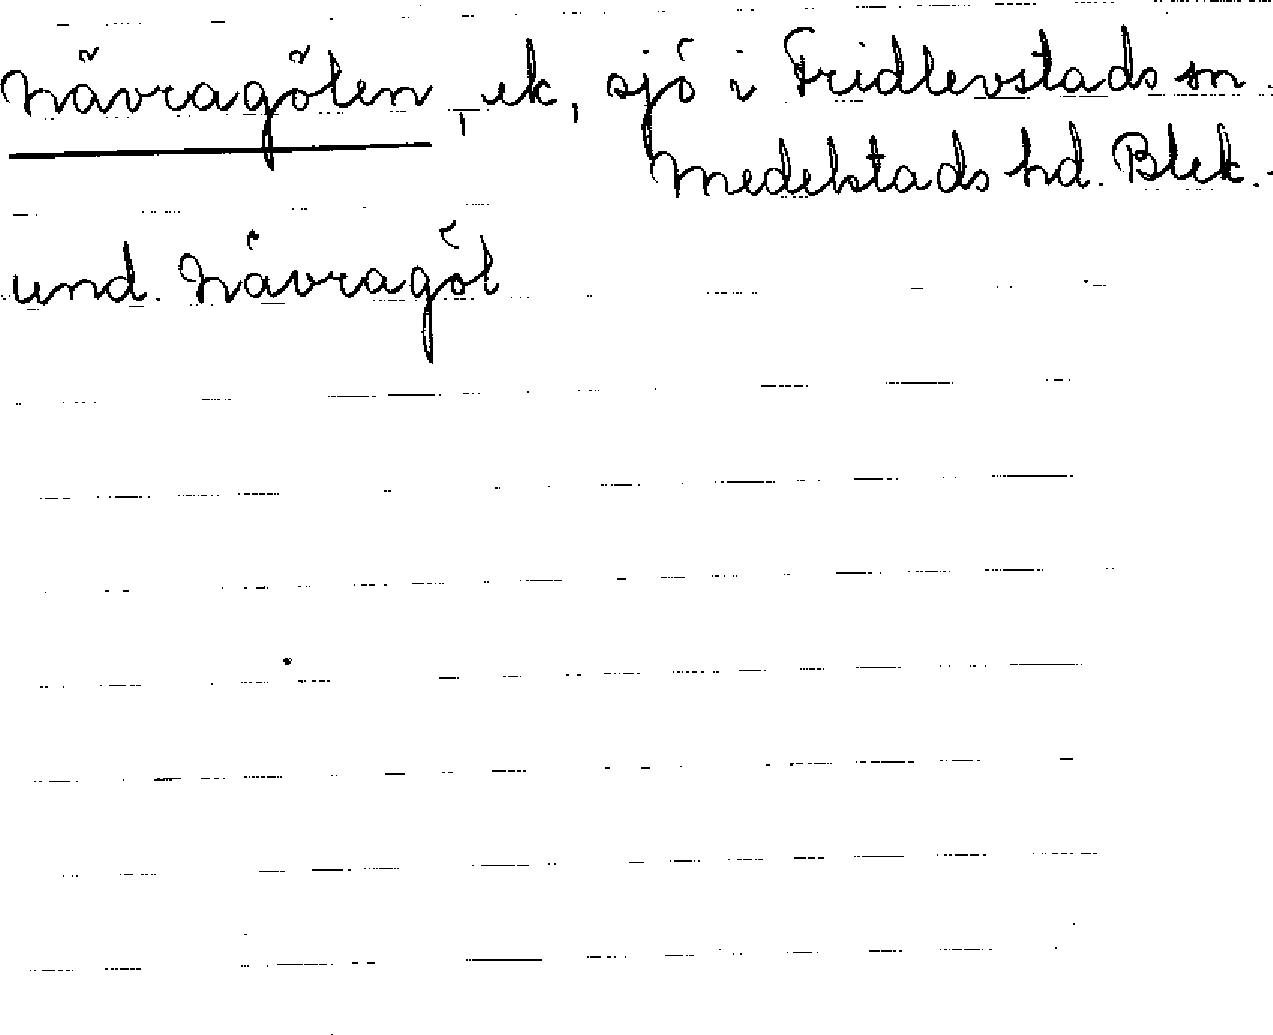 Nävragölen, ek, sjö i Fridlevstads sn.
Medelstads hd. Blek.
und. Nävragöl